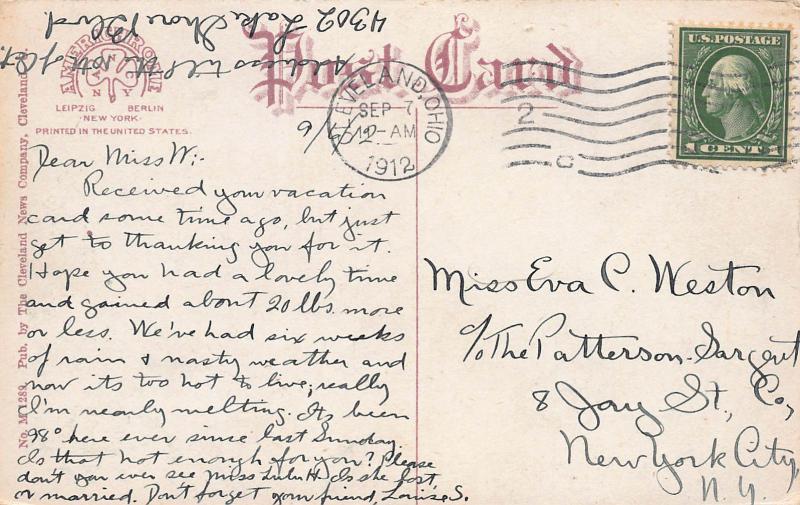 4302 Lake Shore Blvd.
Address till the 10th of Oct.
Post Card
AMERICHROME
A N C N Y
LEIPZIG BERLIN
NEW YORK
PRINTED IN THE UNITED STATES.
No. M 1289. Pub. by The Cleveland News Company, Cleveland
CLEVELAND, OHIO
SEP 7
12-AM
1912
2
C
U.S. POSTAGE
1 CENT 1
9/6/12
Dear Miss W:-
Received your vacation
card some time ago, but just
get to thanking you for it.
Hope you had a lovely time
and gained about 20 lbs. more
or less. We've had six weeks
of rain & nasty weather and
now its too hot to live; really
I'm nearly melting. Its been
98° here ever since last Sunday.
Is that hot enough for you? Please
don't you ever see Miss Lulu H. Is she lost
or married. Don't forget your friend, Louise S.
Miss Eva C. Weston
c/o The Patterson-Sargent
Co,
8 Jay St.,
New York City
N.Y.